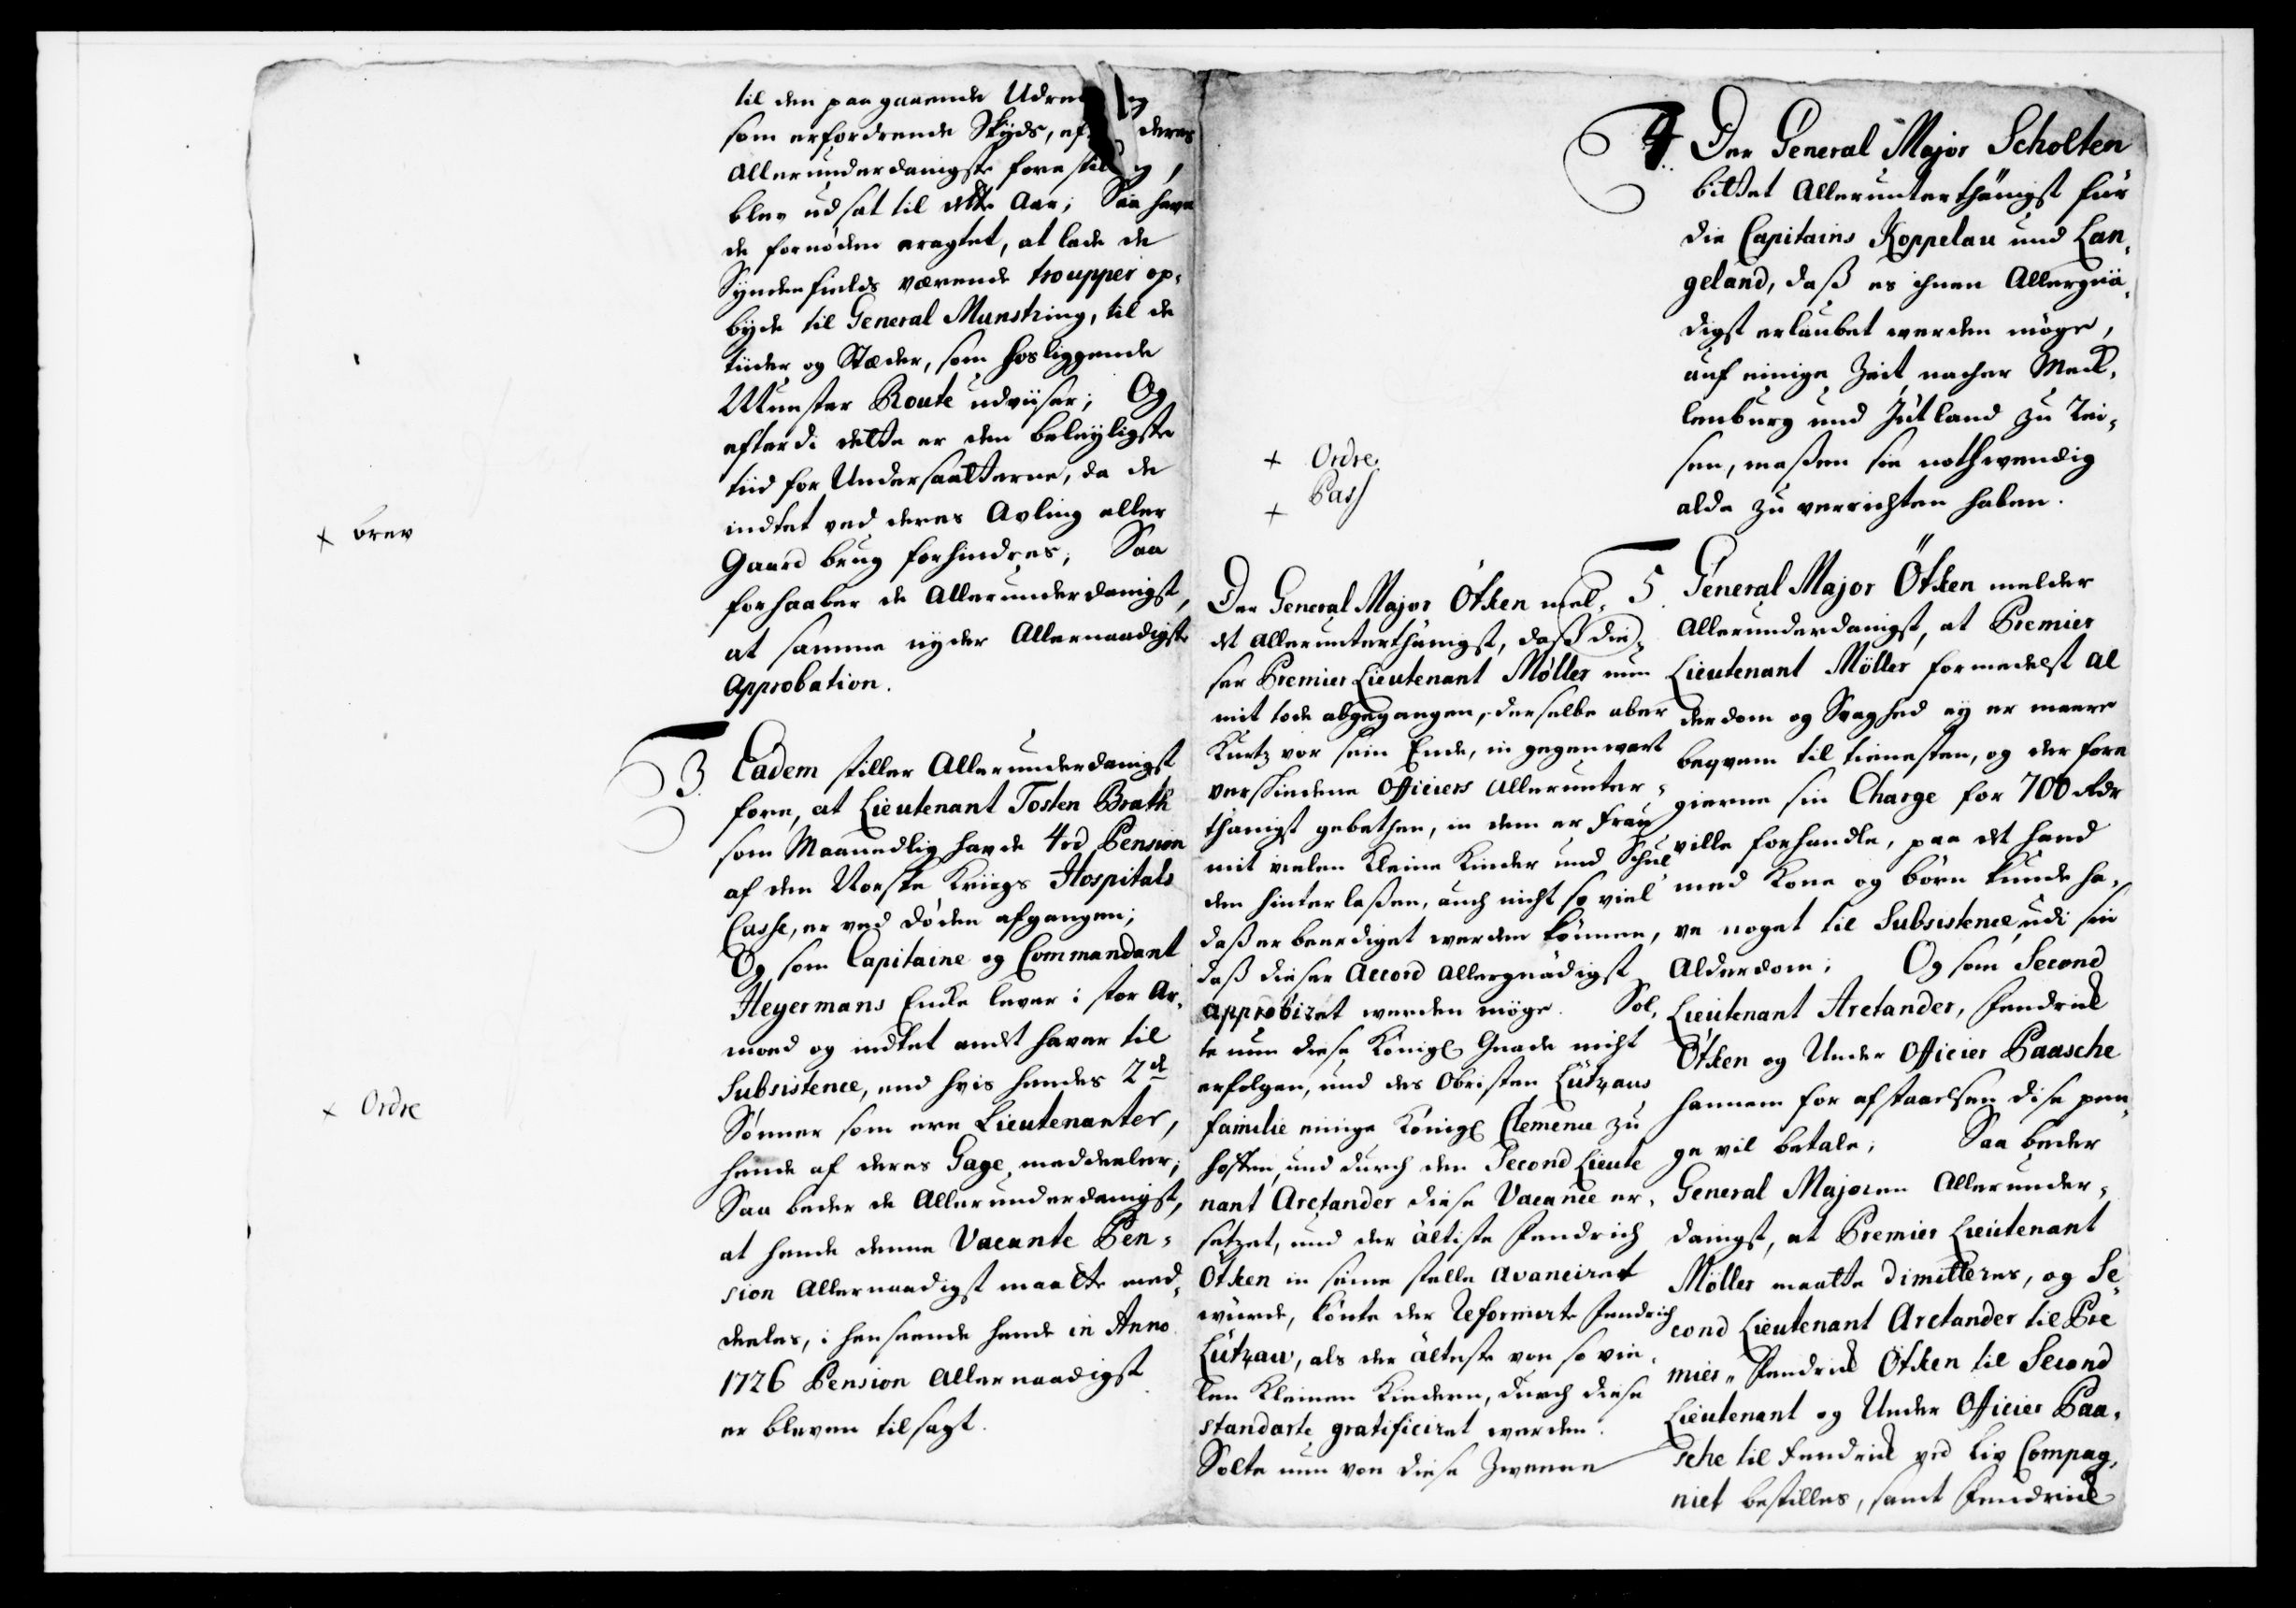 til den paagaaende
som erfordrende Skyds, deres
allerunderdanigste
blev udsat til dette Aar; Saa have
de fornøden eragtet, at lade de
Synden fields værende troupper op-
byde til General Munstring, til de
tiider og Stæder, som hosliggende
Munster Route udviiser; Og
efterdi dette er den beleyligste
tiid for Undersaatterne, da de
indtet ved deres Avling eller
Gaard brug forhindres; Saa
forhaaber de Allerunderdanigst,
at samme nyder Allernaadigste
Approbation.
+ brev
3. Eadem stiller Allerunderdanigst
fore, at Lieutenant Tosten Brath
som Maanedlig havde 4rd Pension
af den Norske Kriigs Hospitals
Casse, er ved døden afgangen;
Og som Capitaine og Commandant
Heyermans Encke lever i stor Ar-
mod og indtet andt haver til
Subsistence, end hvis hendes 2de
Sønner som ere Lieutenanter,
hende af deres Gage meddeeler;
Saa beder de Allerunderdanigst,
at hende denne Vacante Pen-
sion Allernaadigst maatte med-
deeles, i henseende hende in Anno
1726 Pension Allernaadigst
er bleven tilsagt.
+ Ordre
4. Der General Major Scholten
bittet Allerunterthänigst für
die Capitains Koppelau und Lan-
geland, daß es ihnen Allergnä-
digst erlaubet werden möge,
auf einige Zeit nacher Meck-
lenburg und Jütland zu Rei-
sen, maßen sie nothwendig
alda zu verrichten haben.
+ Ordre
+ Pass
Der General Major Ötken mel-
det allerunterthänigst, daß die-
ser Premier Lieutenant Møller nun
mit tode abgegangen, derselbe aber
Kurtz vor sein Ende, in gegenwart
verschiedene Officiers allerunter-
thänigst gebethen, in dem er Frau
mit vielen Kleine Kinder und Schul
den hinterlaßen, auch nicht so viel
daß er beerdiget werden können,
daß dieser Accord allergnädigst
approbiret werden möge. Sol-
te nun diese Königl Gnade nicht
erfolgen, und des Obristen Lützaus
familie einige Königl Clemence zu
hoffen, und durch den Second Lieute
nant Arctander diese Vacance er-
setzet, und der ältiste Fendrich
Ötken in seine stelle avanciret
würde, könte der Reformirte Fendrich
Lützau, als der älteste von so vie-
len Kleinen Kindern, durch diese
standarte gratificiret werden.
Solte nun von diese Zweene
5. General Major Ötken melder
Allerunderdanigst, at Premier
Lieutenant Möller formedelst Al
derdom og Svaghed ey er meere
beqvem til tienesten, og derfore
gierne sin Charge for 700 Rdr
ville forhandle, paa det hand
med Kone og børn kunde ha-
ve noget til Subsistence udi sin
Alderdom; Og som Second
Lieutenant Arctander, Fendrick
Ötken og Under Officier Paasche
hannem for afstaaelsen dise pen-
ge vil betale; Saa beder
General Majoren Allerunder-
danigst, at Premier Lieutenant
Möller maatte dimitteres, og Se-
cond Lieutenant Arctander til Pre
mier, Fendrick Ötken til Second
Lieutenant og Under Officier Paa-
sche til Fendrick ved Liv Compag-
niet bestilles, samt Fendrick